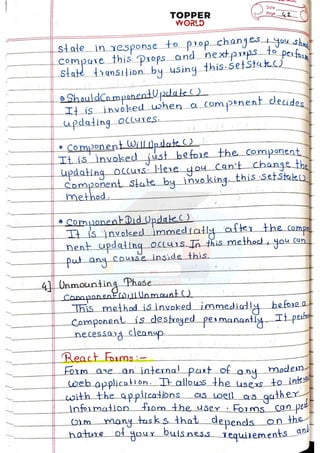 TOPPER
WORLD
Date
Page 42
state in response to prop changes, you shou
compare this.props and nextprops to perform
state transition by using this.setState()
• ShouldComponentUpdate()
It is invoked when a component decides
updating occures.
• Component Will Update()
It is invoked just before the component
updating occurs. Here you can't change the
component state by invoking this.setState()
method.
• Component Did Update()
It is invoked immediatly after the compo
nent updating occurs. In this method, you can
put any course inside this.
4] Unmounting Phase
Component Will Unmount()
This method is invoked immediatly before a
component is destroyed permanantly. It perfor
necessary cleanup.
React Forms :-
Form are an internal part of any modern
web application. It allows the users to inter
with the applications as well as gather
Information from the user. Forms can perf
orm many tasks that depends on the
nature of your buisness requirements and